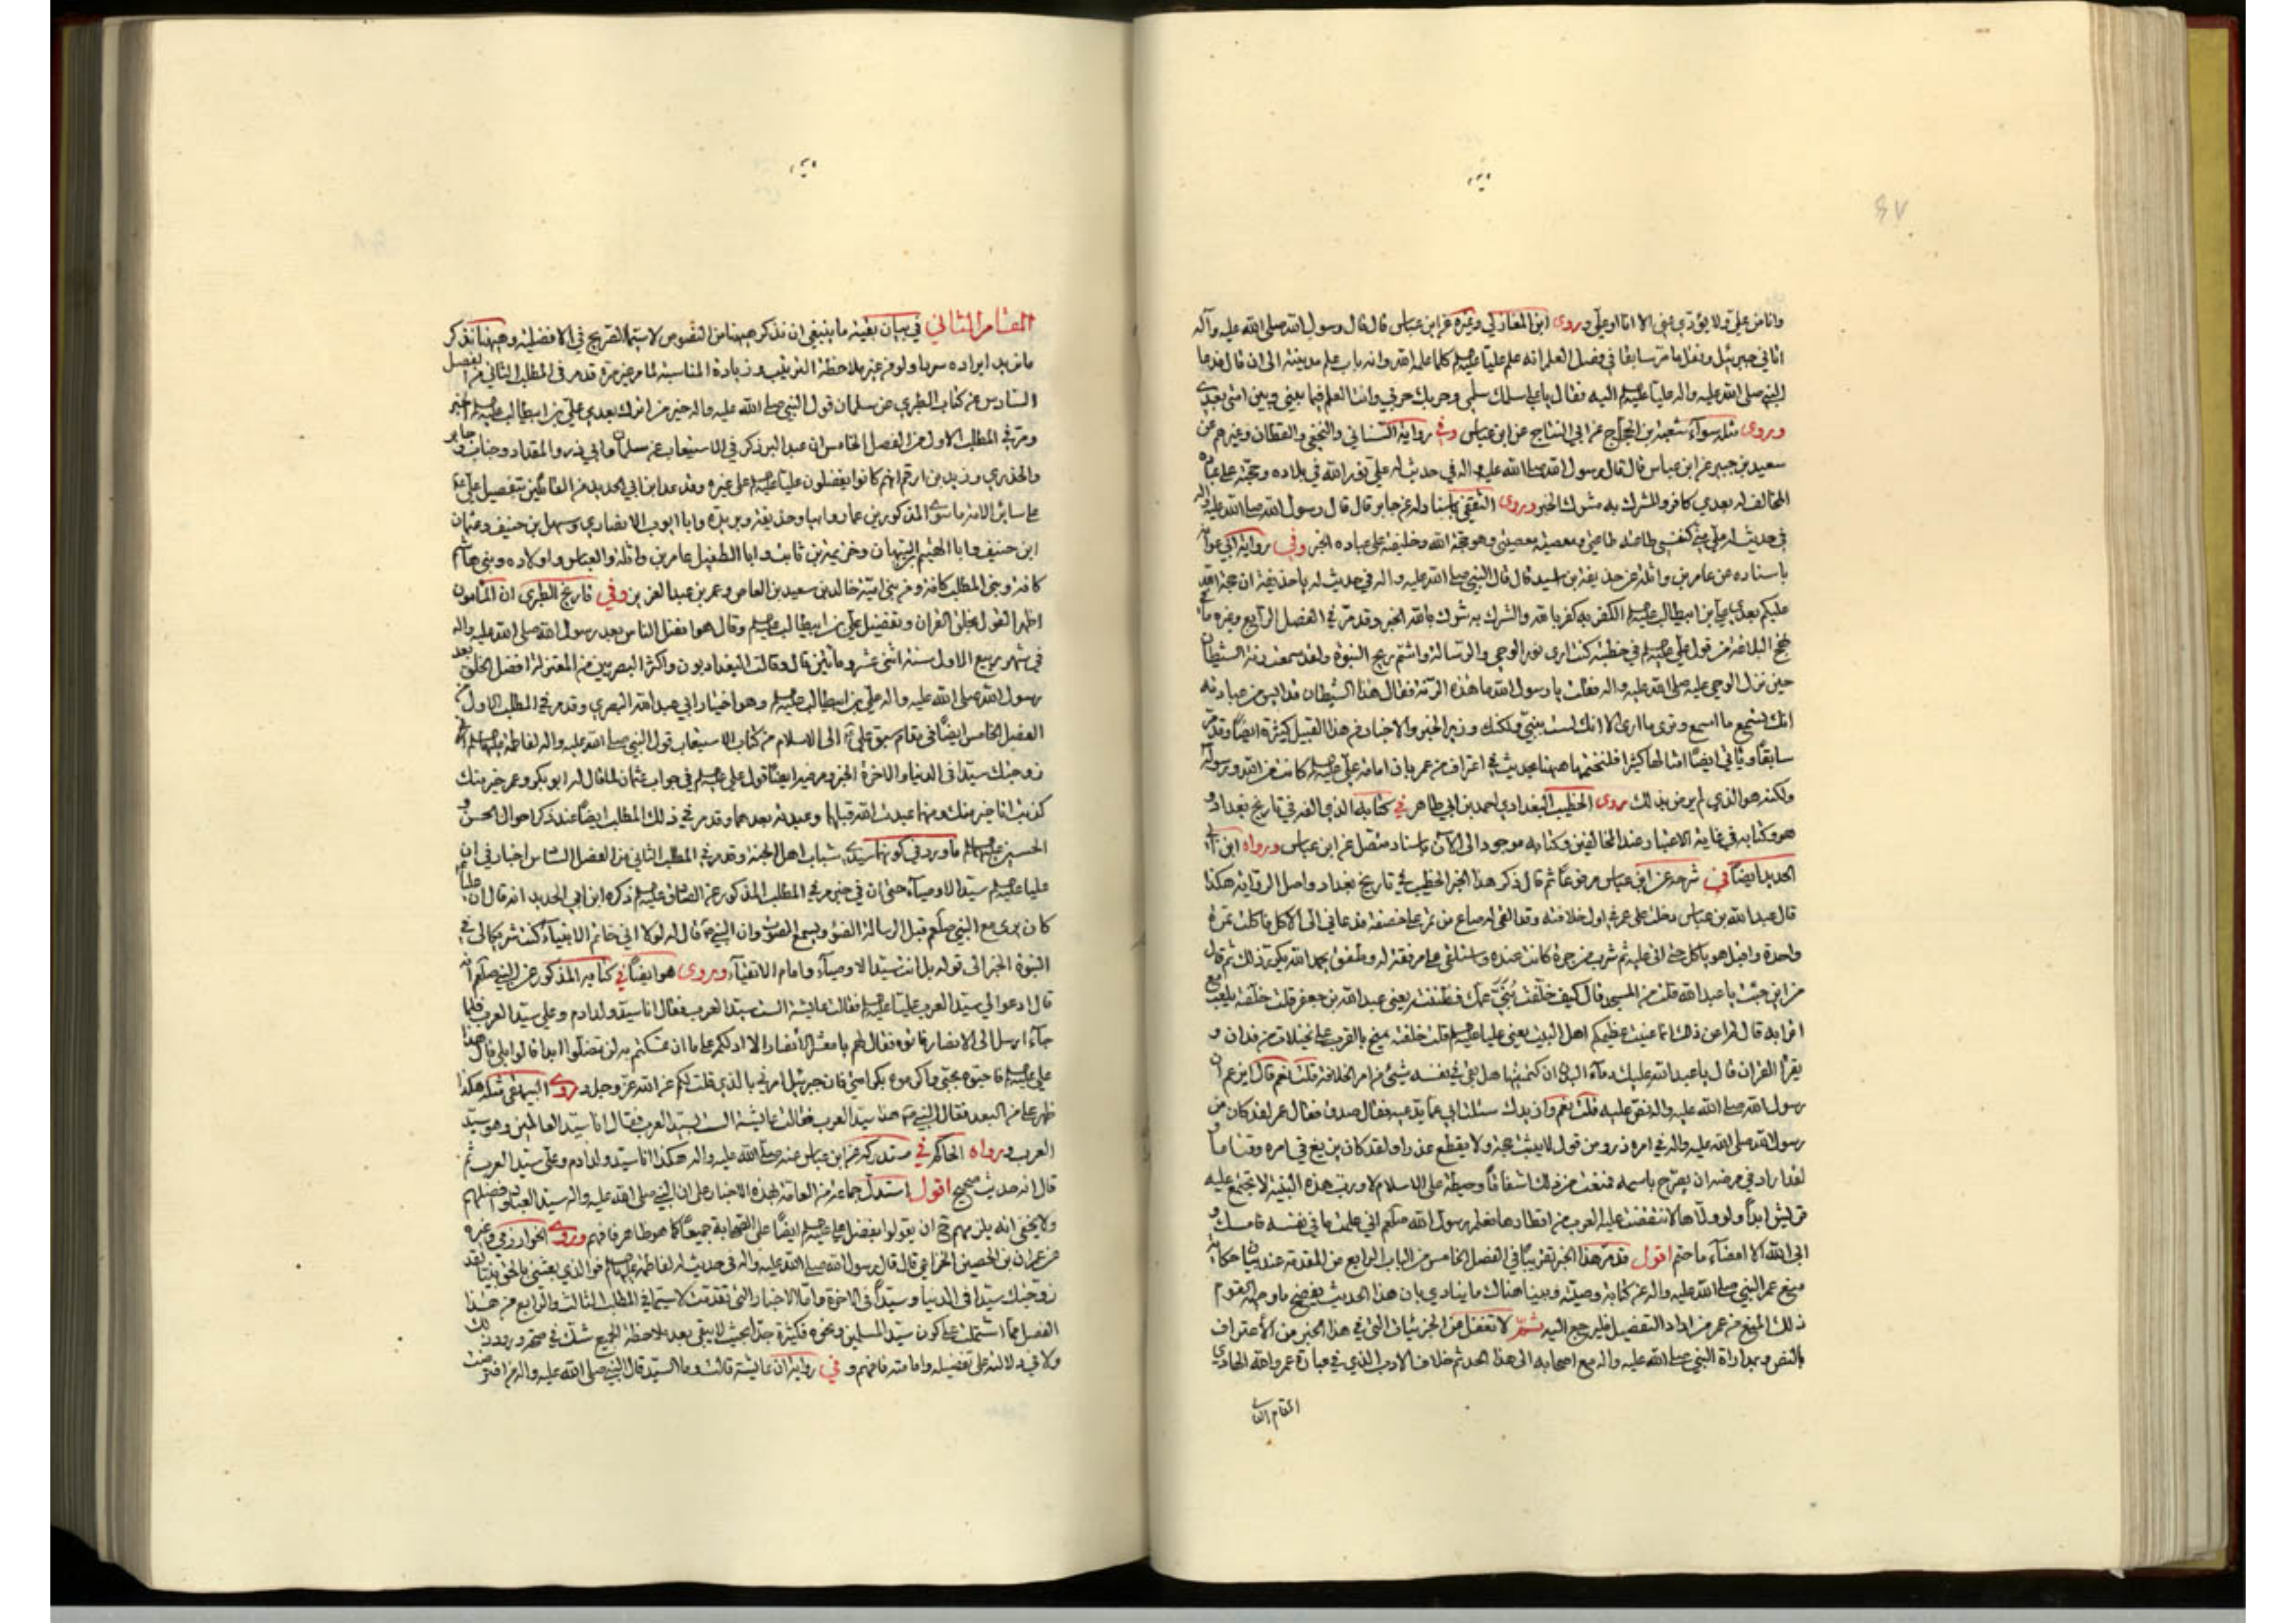 وانا من علي ولا يؤدي عني الا انا او علي وروى ابن المغازلي وغيره عن ابن عباس قال قال رسول الله صلى الله عليه وآله
اتاني جبرئيل ونقل ما مر سابقا في فضل العلم انه علم عليا كلما علمه الله وانه باب علم مدينته الى ان قال فدعا
النبي صلى الله عليه واله عليا اليه وقال يا علي سلمك سلمي وحربك حربي وانت العلم فيما بيني وبين امتي بعدي
وروى مثله سواء شعبة بن الحجاج عن ابي التياح عن ابن عباس وفي رواية والنخعي والقطان وغيرهم عن
سعيد بن جبير عن ابن عباس قال قال رسول الله صلى الله عليه واله في حديث له علي نور الله في بلاده وحجته على عباده
المخالف له بعدي كافر والمشرك به مشرك الخبر وروى الثقفي باسناد له عن جابر قال قال رسول الله صلى الله عليه واله
في حديث له علي كنفسي طاعته طاعتي ومعصيته معصيتي وهو حجة الله وخليفته على عباده الخبر وفي رواية ابي
باسناده عن عامر بن واثلة عن حذيفة بن اسيد قال قال النبي صلى الله عليه واله في حديث له يا حذيفة ان حجة الله
عليكم بعدي علي بن ابيطالب الكفر به كفر بالله والشرك به شرك بالله الخبر وقد مر في الفصل الرابع وغيره ما في
نهج البلاغة من قول علي في خطبته كنت ارى نور الوحي والرسالة واشم ريح النبوة ولقد سمعت رنة الشيطان
حين نزل الوحي عليه صلى الله عليه واله فقلت يا رسول الله ما هذه الرنة فقال هذا الشيطان قد ايس من عبادته
انك تسمع ما اسمع وترى ما ارى الا انك لست بنبي ولكنك وزير الخبر والاخبار من هذا القبيل كثيرة ايضا وقد مر
سابقا وياتي ايضا امثالها كثيرا فلنختم ما ههنا بحديث في اعتراف من عمر بان امامة علي كانت من الله ورسوله
ولكنه هو الذي لم يرض بذلك روى الخطيب البغدادي احمد بن ابي طاهر في كتابه الذي الفه في تاريخ بغداد و
هو وكتابه في غاية الاعتبار عند المخالفين وكتابه موجود الى الآن باسناد متصل عن ابن عباس ورواه ابن ابي
الحديد ايضا في شرحه عن ابن عباس مرفوعا ثم قال ذكر هذا الخبر الخطيب في تاريخ بغداد واصل الرواية هكذا
قال عبد الله بن عباس دخلت على عمر في اول خلافته وقد القي له صاع من تمر على خصفة فدعاني الى الاكل فاكلت تمرة
واحدة واقبل هو ياكل حتى اتى عليه ثم شرب من جرة كانت عنده واستلقى على مرفقة له وطفق يحمد الله يكرر ذلك ثم قال
من اين جئت يا عبد الله قلت من المسجد قال كيف خلفت بني عمك فظننته يعني عبد الله بن جعفر قلت خلفته يلعب مع
اترابه قال لم اعن ذلك انما عنيت عظيمكم اهل البيت يعني عليا قلت خلفته يمتح بالغرب على نخيلات من فدان و
يقرأ القران قال يا عبد الله عليك دماء البدن ان كتمتنيها هل بقي في نفسه شيئ من امر الخلافة قلت نعم قال ايزعم ان
رسول الله صلى الله عليه واله نص عليه قلت نعم وازيدك سئلت ابي عما يدعيه فقال صدق فقال عمر لقد كان من
رسول الله صلى الله عليه واله في امره ذرو من قول لا يثبت حجة ولا يقطع عذرا ولقد كان يربع في امره وقتا ما و
لقد اراد في مرضه ان يصرح باسمه فمنعت من ذلك اشفاقا وحيطة على الاسلام لا ورب هذه البنية لا تجتمع عليه
قريش ابدا ولو وليها لانتقضت عليه العرب من اقطارها فعلم رسول الله صلعم اني علمت ما في نفسه فامسك و
ابى الله الا امضاء ما حتم اقول قد مر هذا الخبر تقريبا في الفصل الخامس من الباب الرابع من المقدمة عند بيان حكاية
منع عمر النبي صلى الله عليه واله عن كتابة وصيته وبينا هناك ما ينادي بان هذا الحديث يفضح ما وجه القوم
ذلك المنع من عمر من اراد التفصيل فليرجع اليه ثم لا تغفل من الجزئيات التي في هذا الخبر من الاعتراف
بالنص وبمداراة النبي صلى الله عليه واله مع اصحابه الى هذا الحد ثم خلاف الادب الذي في عبارة عمر والله الهادي
المقام الثاني
المقام الثاني في بيان بقية ما ينبغي ان نذكر ههنا من النصوص لاسيما الصريح في الافضلية وههنا نذكر
ما نريد ايراده سردا ولو من غير ملاحظة الترتيب وزيادة المناسبة لما مر غير مرة قد مر في المطلب الثاني من الفصل
السادس عن كتاب الطبري عن سلمان قول النبي صلى الله عليه واله خير من اترك بعدي علي بن ابيطالب الخبر
ومر في المطلب الاول من الفصل الخامس ان عبد البر ذكر في الاستيعاب عن سلمان وابي ذر والمقداد وخباب وجابر
والخدري وزيد بن ارقم انهم كانوا يفضلون عليا على غيره وقد عد ابن ابي الحديد من القائلين بتفضيل علي
على سائر الامة ما سوى المذكورين عمار وابيا وحذيفة وبريدة وابا ايوب الانصاري وسهل بن حنيف وعثمان
ابن حنيف وابا الهيثم التيهان وخزيمة بن ثابت وابا الطفيل عامر بن واثلة والعباس واولاده وبني هاشم
كافة وبني المطلب كافة ومن بني امية خالد بن سعيد بن العاص وعمر بن عبد العزيز وفي تاريخ الطبري ان المأمون
اظهر القول بخلق القران وتفضيل علي بن ابيطالب وقال هو افضل الناس بعد رسول الله صلى الله عليه واله
في شهر ربيع الاول سنة اثنى عشر ومأتين قال وقالت البغداديون واكثر البصريين من المعتزلة افضل الخلق بعد
رسول الله صلى الله عليه واله علي بن ابيطالب وهو اختيار ابي عبد الله البصري وقد مر في المطلب الاول من
الفصل الخامس ايضا في مقام سبق علي الى الاسلام من كتاب الاستيعاب قول النبي صلى الله عليه واله لفاطمة
زوجتك سيدا في الدنيا والاخرة الخبر ومر فيه ايضا قول علي في جواب عثمان لما قال له ابو بكر وعمر خير منك
كذبت انا خير منك ومنهما عبدت الله قبلهما وعبدته بعدهما وقد مر في ذلك المطلب ايضا عند ذكر احوال الحسن و
الحسين ما ورد في كونهما سيدي شباب اهل الجنة وقد مر في المطلب الثاني من الفصل السادس اخبار في ان
عليا سيد الاوصياء حتى ان في خبر مر في المطلب المذكور عن الصادق ذكره ابن ابي الحديد انه قال ان عليا
كان يرى مع النبي صلعم قبل الرسالة الضوء ويسمع الصوت وان النبي قال له لولا اني خاتم الانبياء كنت شريكا لي في
النبوة الخبر الى قوله بل انت سيد الاوصياء وامام الاتقياء وروى هو ايضا في كتابه المذكور عن النبي صلعم انه
قال ادعوا لي سيد العرب عليا فقالت عائشة الست سيد العرب فقال انا سيد ولد ادم وعلي سيد العرب فلما
جآء ارسل الى الانصار فاتوه فقال لهم يا معشر الأنصار الا ادلكم على ما ان تمسكتم به لن تضلوا ابدا قالوا بلى قال هذا
علي فاحبوه بحبي واكرموه بكرامتي فان جبرئيل امرني بالذي قلت لكم عن الله عز وجل وروى البيهقي مثله هكذا
ظهر علي من البعد فقال النبي هذا سيد العرب فقالت عائشة الست سيد العرب فقال انا سيد العالمين وهو سيد
العرب ورواه الحاكم في مستدركه عن ابن عباس عنه صلى الله عليه واله هكذا انا سيد ولد ادم وعلي سيد العرب ثم
قال انه حديث صحيح اقول استدل جماعة من العامة بهذه الاخبار على ان النبي صلى الله عليه واله سيد العباد وافضلهم
ولا يخفى انه يلزمهم ح ان يقولوا بفضل علي ايضا على الصحابة جميعا كما هو ظاهر فافهم وروى الخوارزمي وغيره
عن عمران بن الحصين الخزاعي قال قال رسول الله صلى الله عليه واله في حديث له لفاطمة فو الذي بعثني بالحق نبيا لقد
زوجتك سيدا في الدنيا وسيدا في الاخرة واما الاخبار التي تقدمت لاسيما في المطلب الثالث والرابع من هذا
الفصل مما اشتملت على كون سيد المسلمين ونحوه فكثيرة جدا بحيث لا يبقى بعد ملاحظة الجميع شك في صحة ورود ذلك
ولا في دلالته على تفضيله وامامته فافهم وفي رواية ان عائشة قالت وما السيد قال النبي صلى الله عليه واله من افترضت